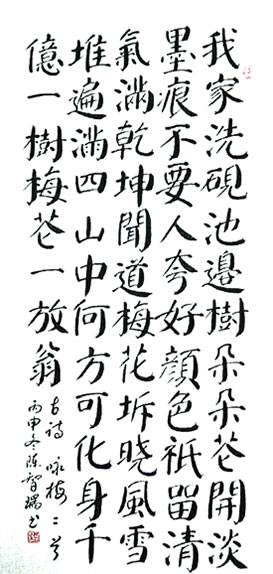 我家洗硯池邊樹朵朵花開淡
墨痕不要人夸好顏色祇留清
氣滿乾坤聞道梅花坼晓風雪
堆遍滿四山中何方可化身千
億一樹梅花一放翁
古詩 咏梅二首
丙申冬陳智瑞书